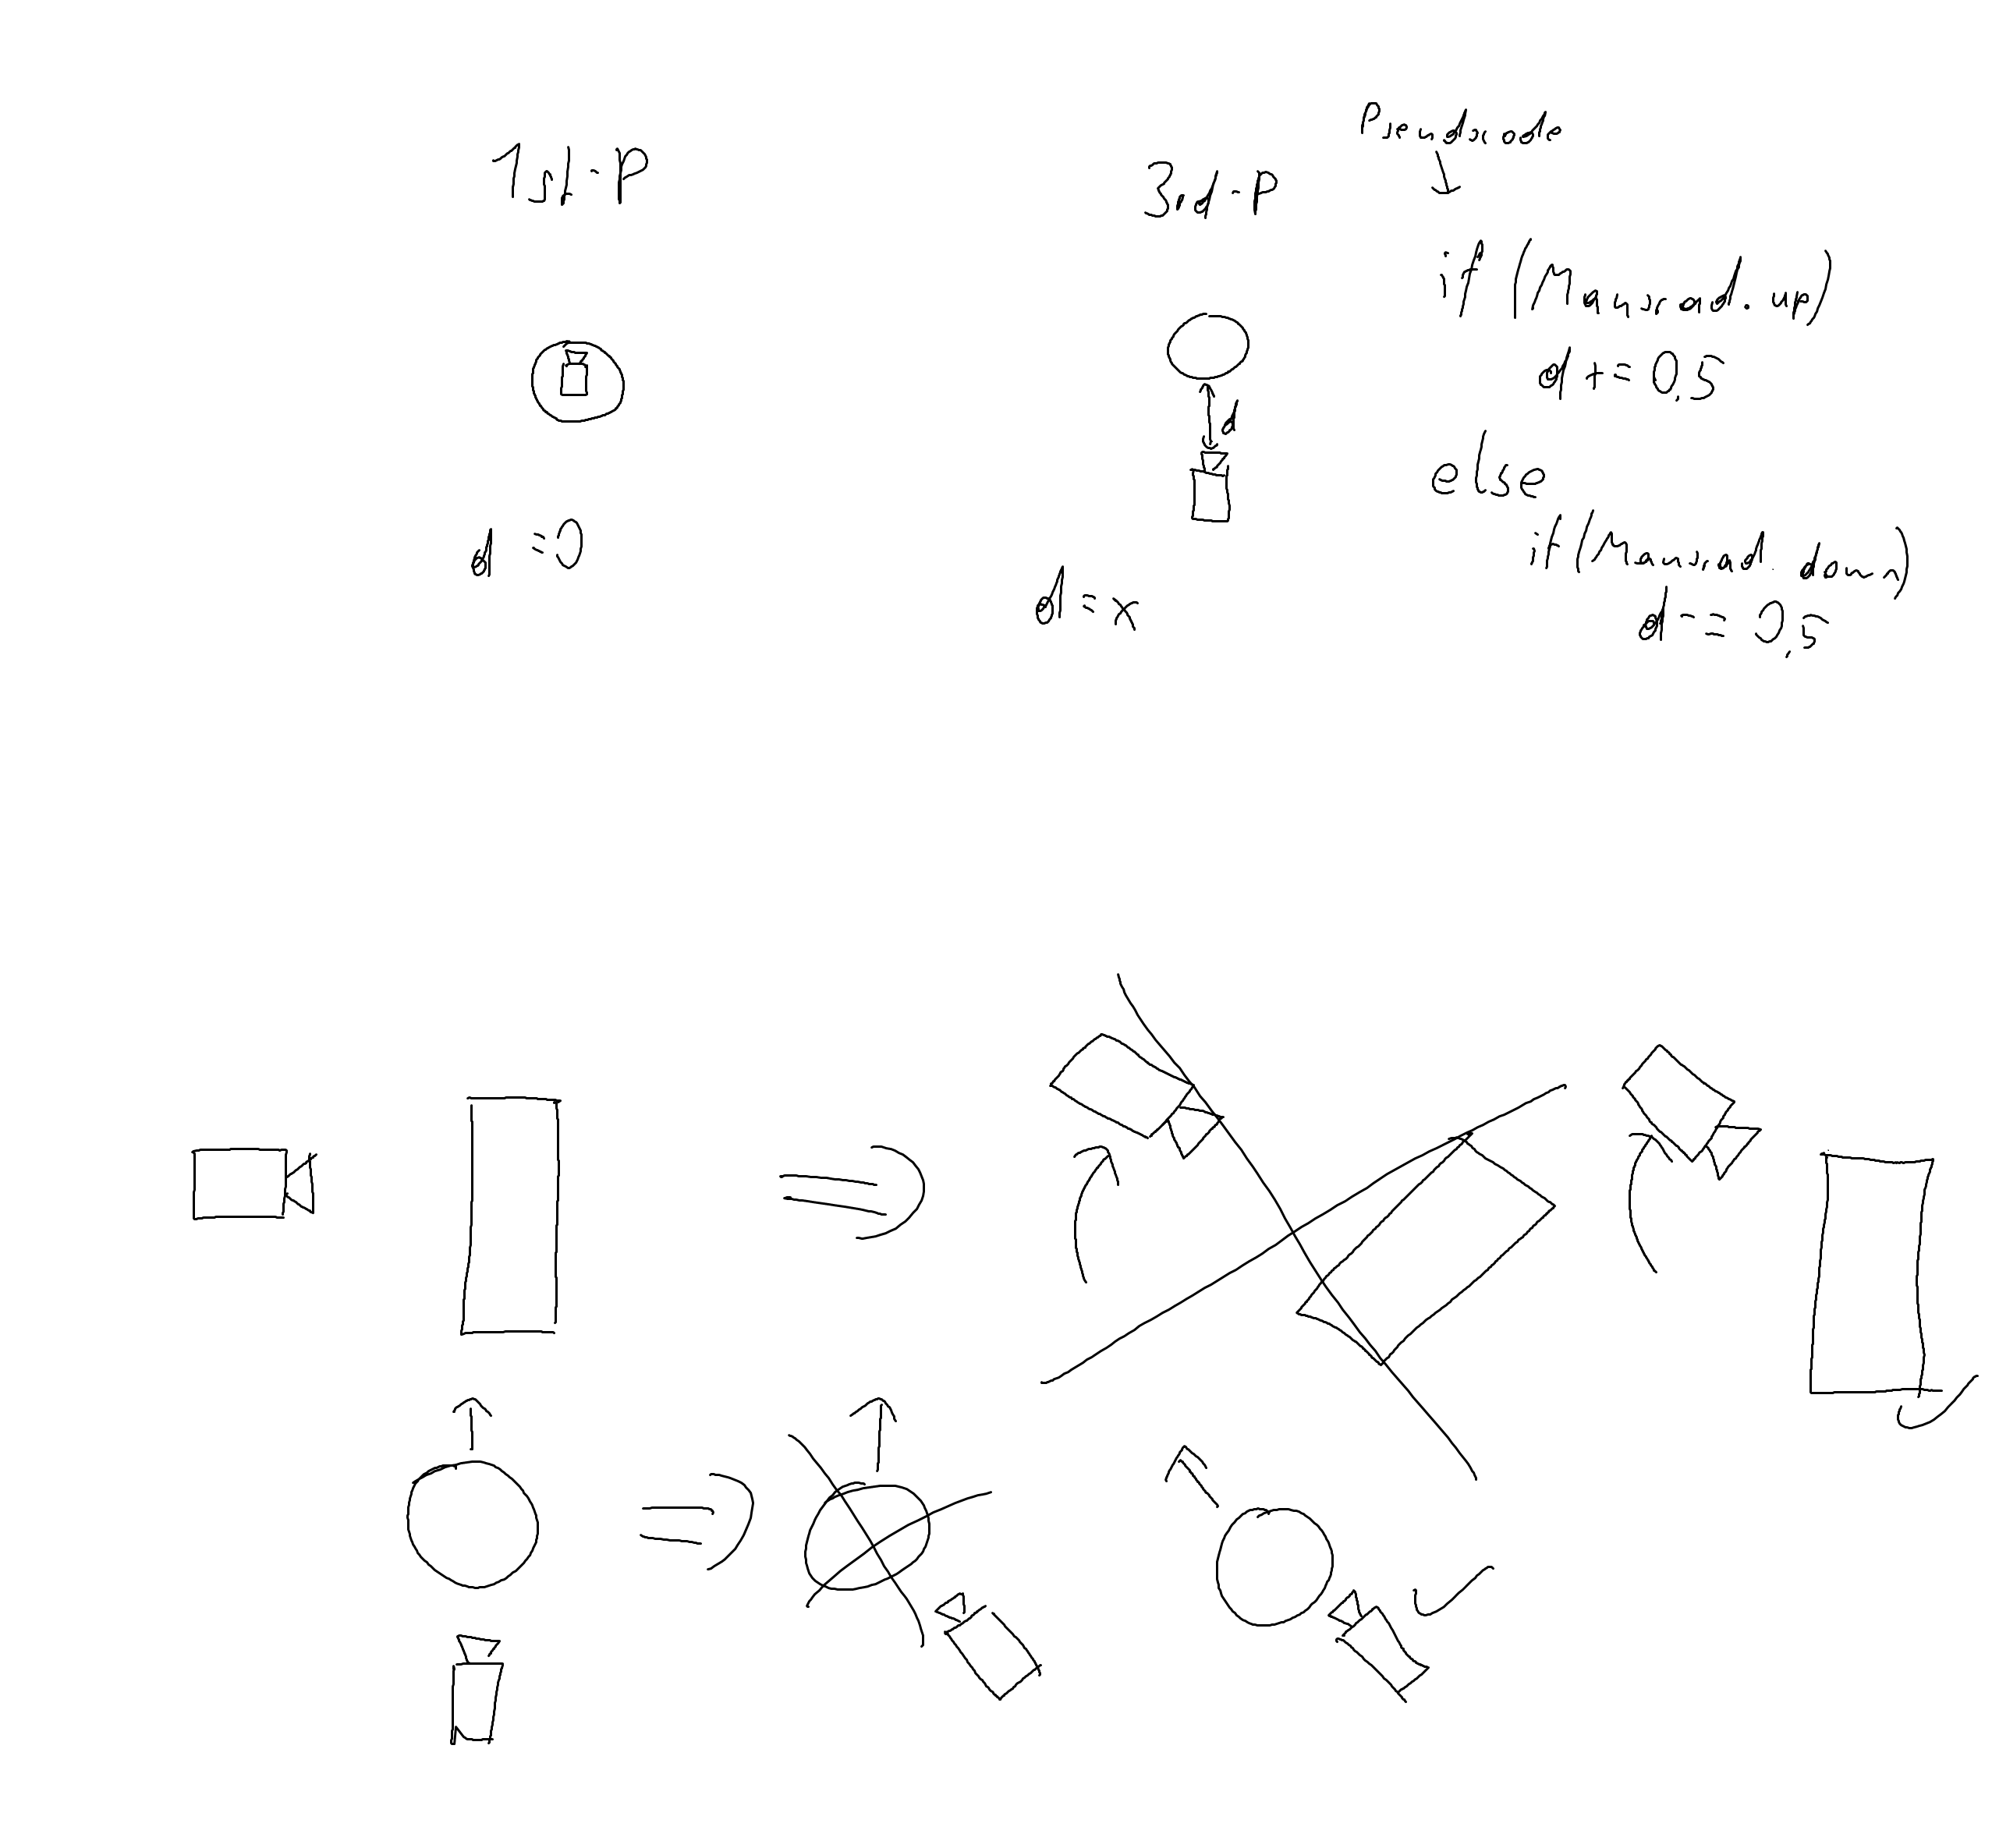 1st-P
3rd-P
Pseudocode
if (Mausrad.up)
d += 0,5
else
if (Mausrad.down)
d -= 0,5
d
d = 0
d = x